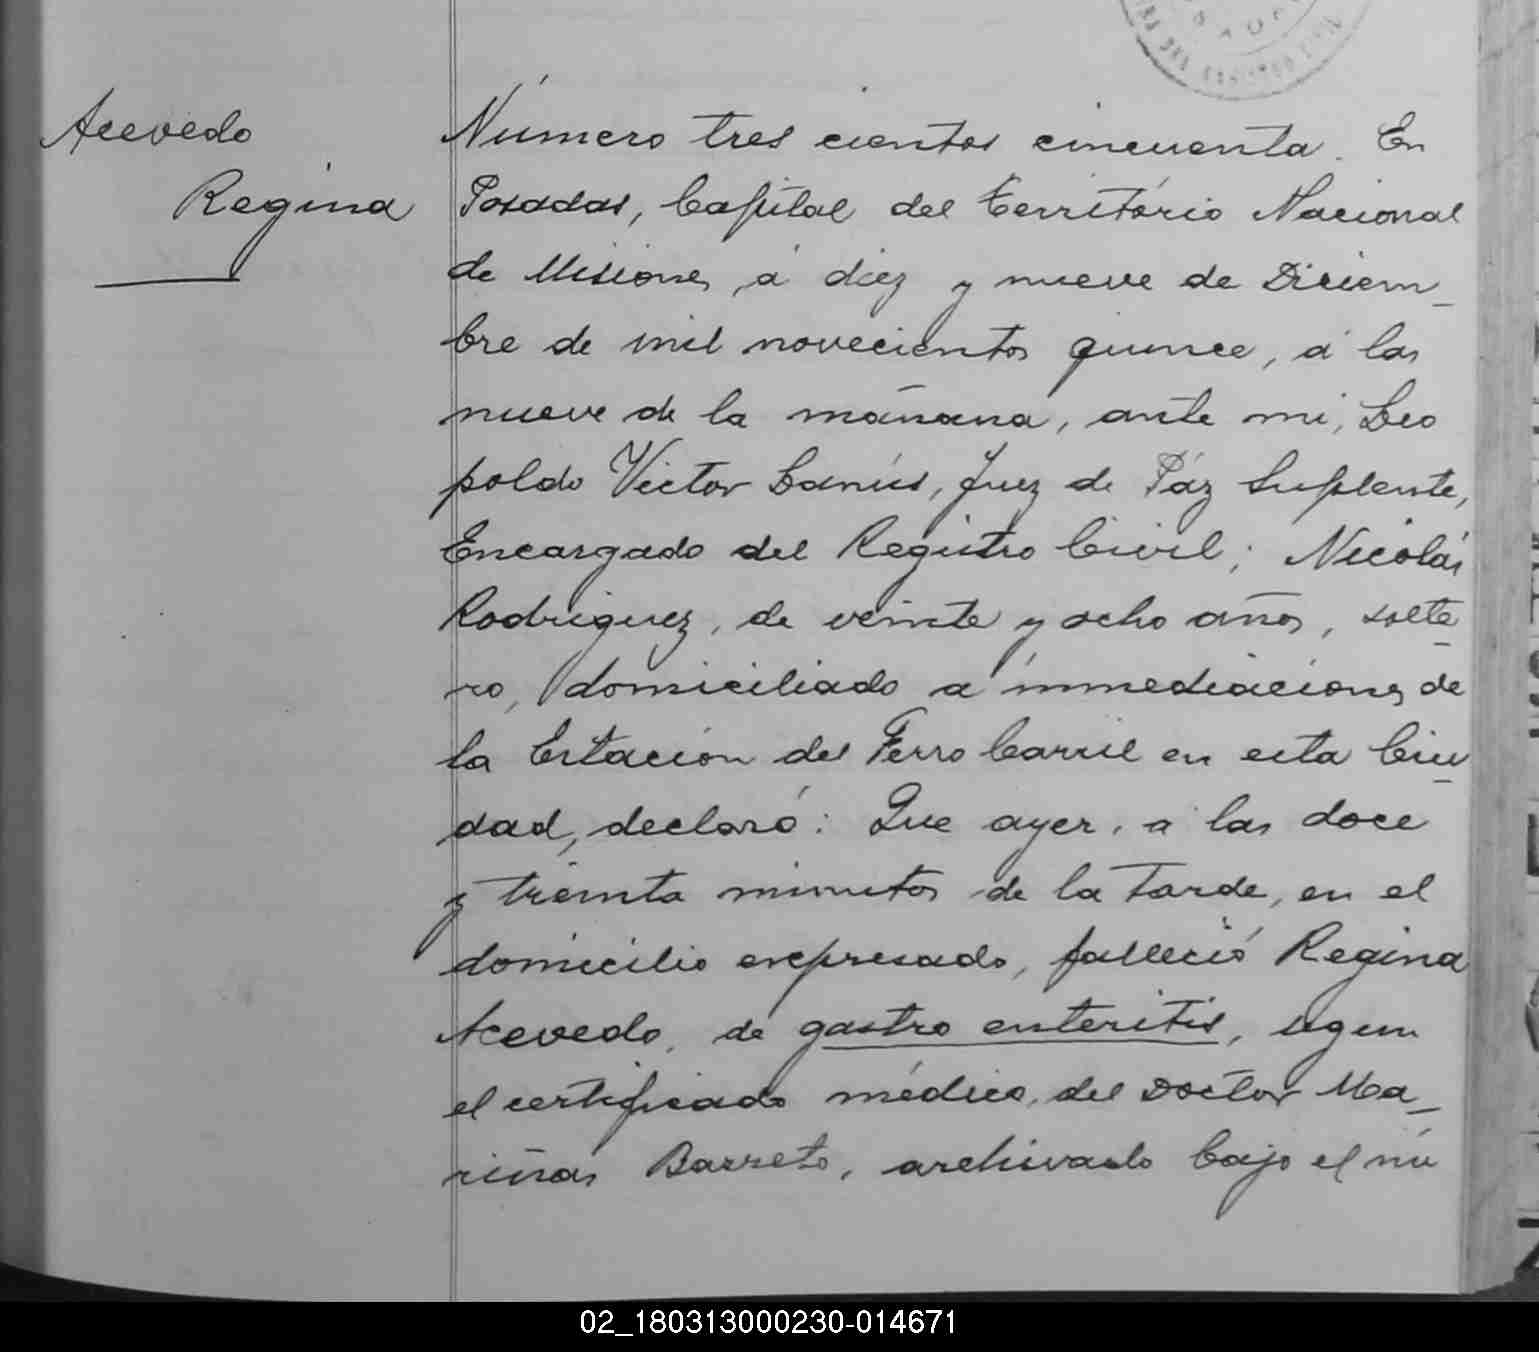 Acevedo
Regina
Número tres cientos cincuenta. En
Posadas, Capital del Território Nacional
de Misiones, á diez y nueve de Diciem_
bre de mil novecientos quince, á las
nueve de la mañana, ante mi, Leo
poldo Victor Lanús, Juez de Páz Suplente,
Encargado del Registro Civil; Nicolás
Rodriguez, de veinte y ocho años, solte_
ro, domiciliado a inmediaciones de
la Estación del Ferro Carril en esta Ciu_
dad, declaró: Que ayer, a las doce
y treinta minutos de la tarde, en el
domicilio expresado, falleció Regina
Acevedo, de gastro enteritis, segun
el certificado médico, del Doctor Ma_
riñas Barreto, archivado bajo el nú
02_180313000230-014671